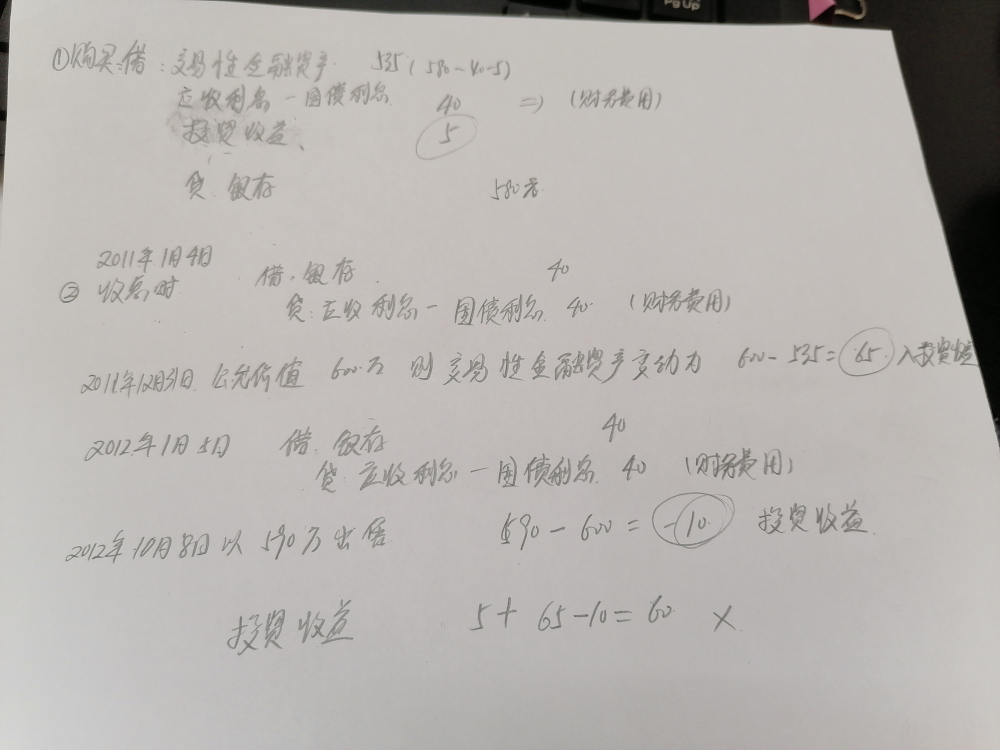 ①购买:借:交易性金融资产 535(580-40-5)
应收利息-国债利息 40 => (财务费用)
投资收益、 5
贷.银存 580万
2011年1月4日
②收息时 借.银存 40
贷:应收利息-国债利息 40 (财务费用)
2011年12月31日.公允价值 600万 则交易性金融资产变动为 600-535=65 入投资收益
2012年1月5日 借.银存 40
贷:应收利息-国债利息.40 (财务费用)
2012年10月8日以590万出售 590-600=-10. 投资收益
投资收益 5+65-10=60 ×
PgUp